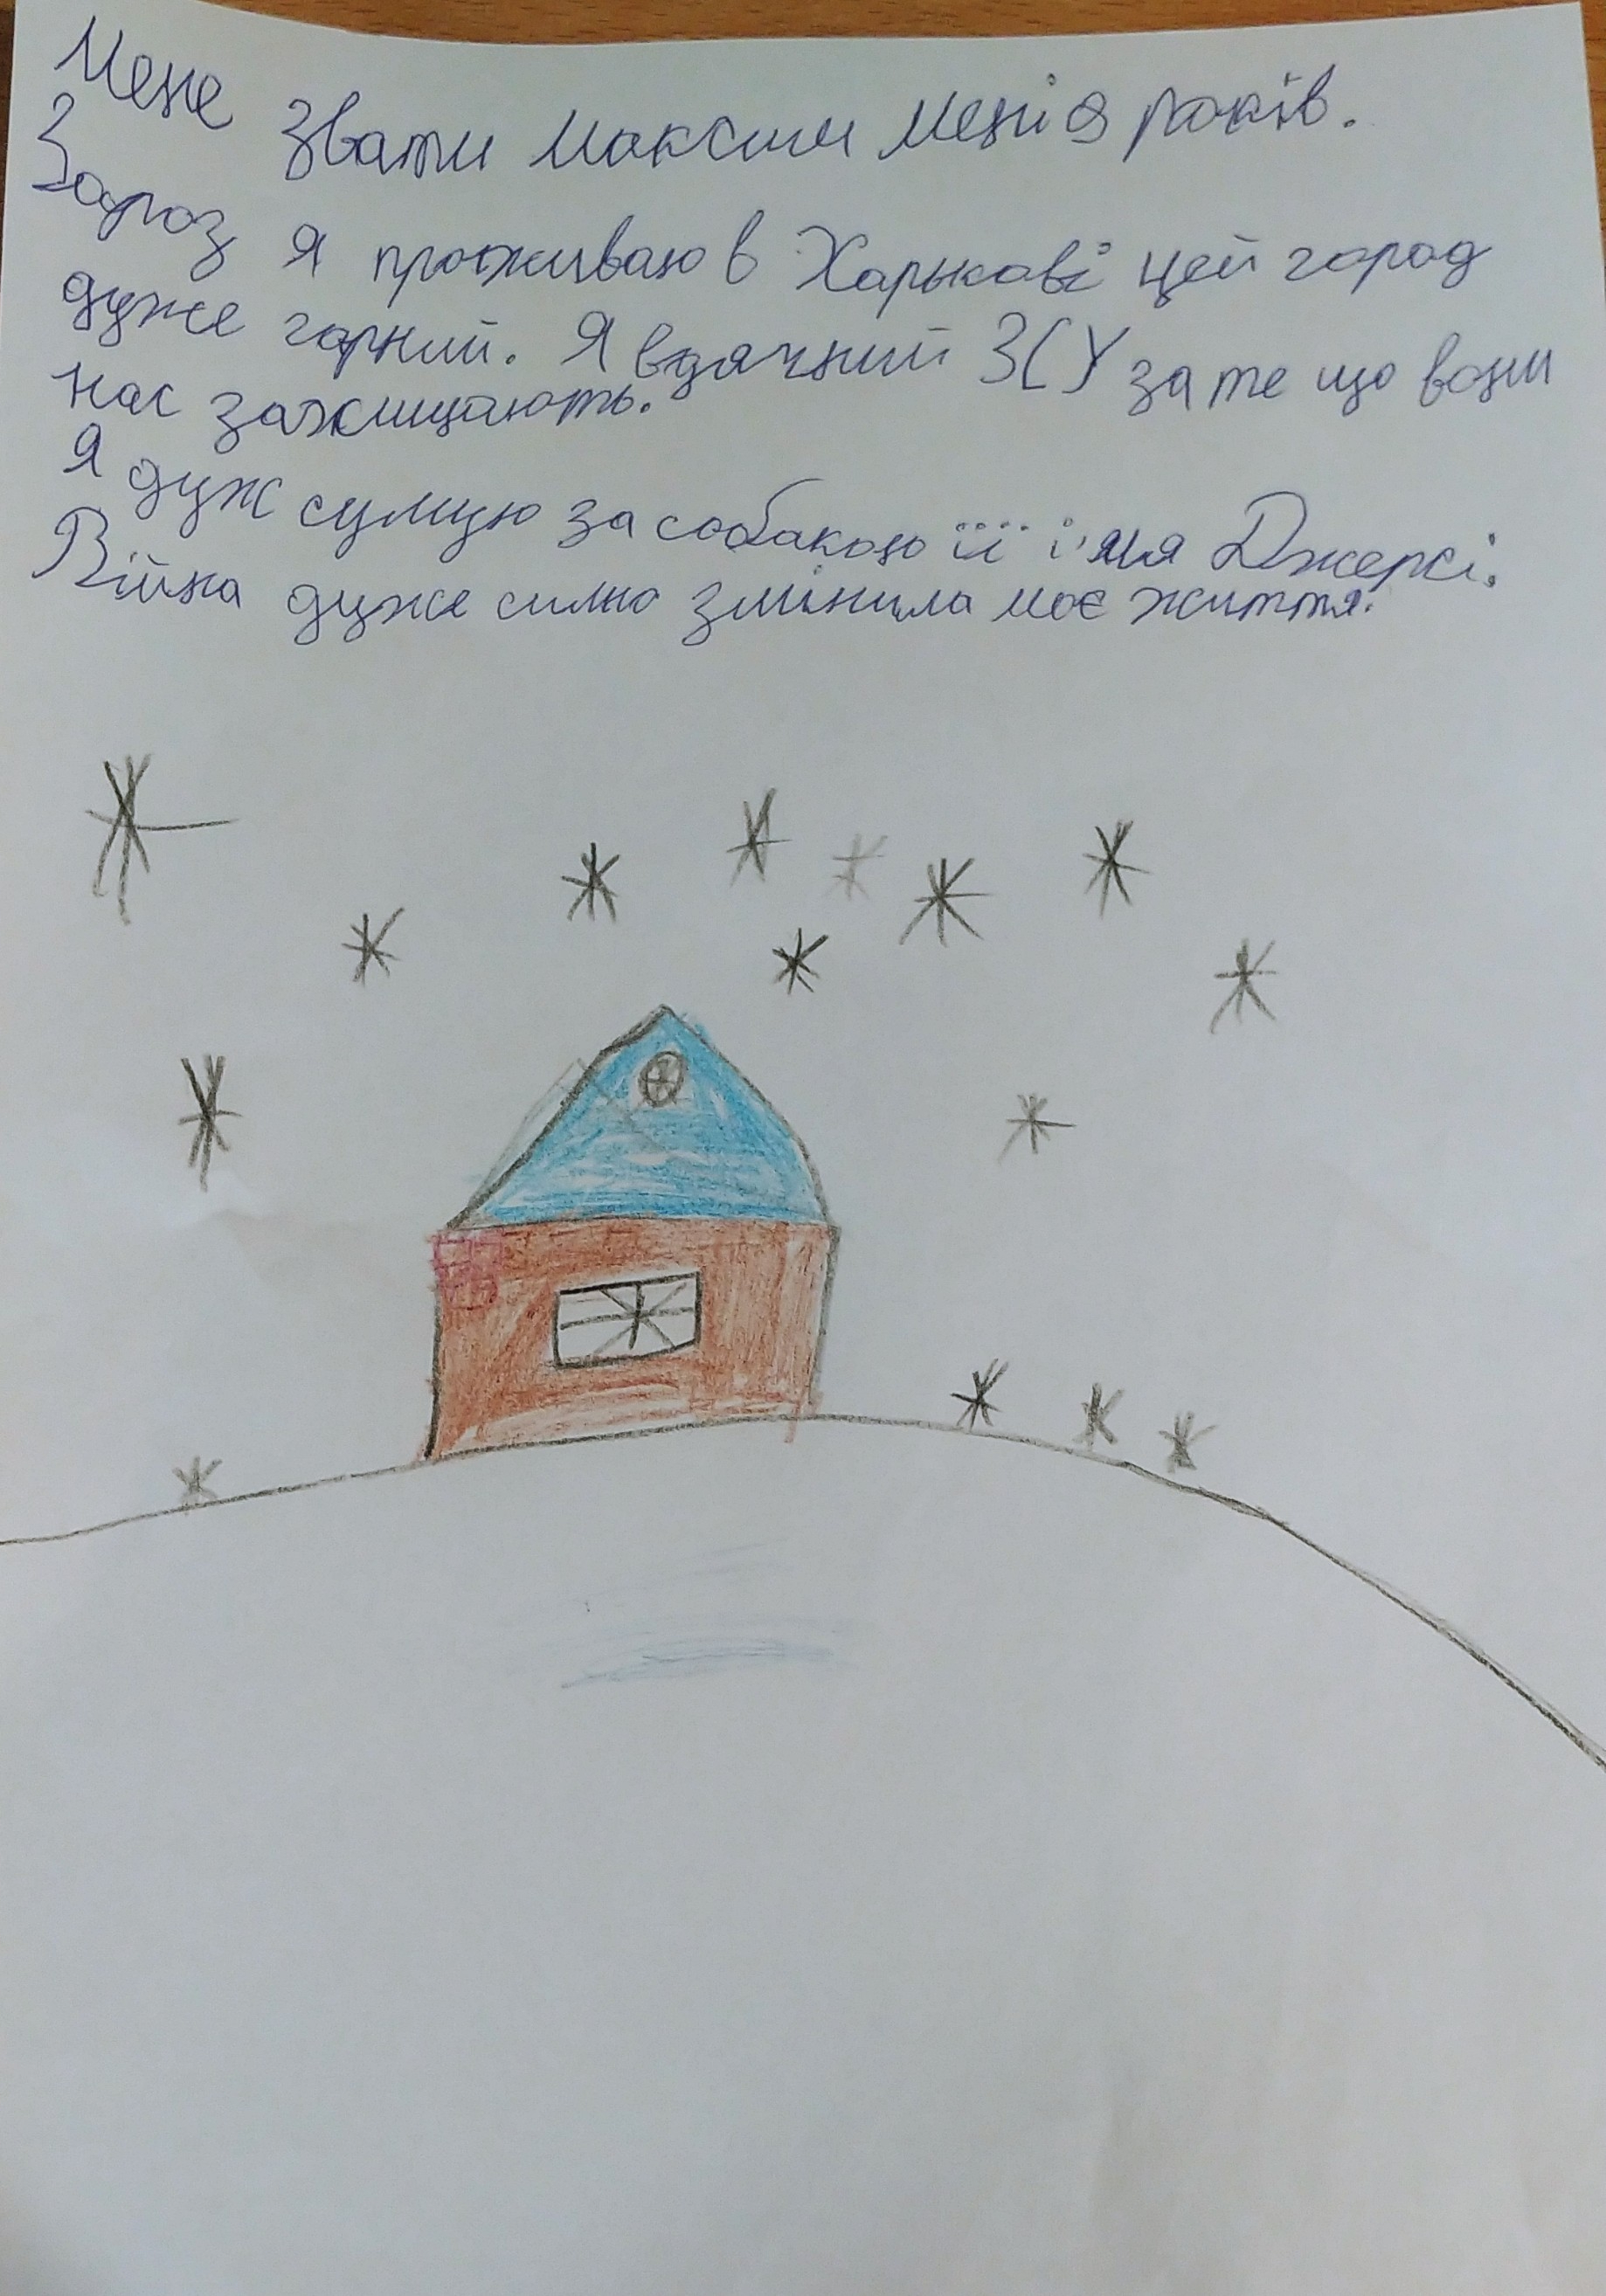 Мене звати Максим мені 9 років.
Зараз я проживаю в Харькові цей город
дуже гарний. Я вдячний ЗСУ за те що вони
нас захищають.
Я дуж сумую за собакою її і'мя Джерсі.
Війна дуже силно змінила моє життя.